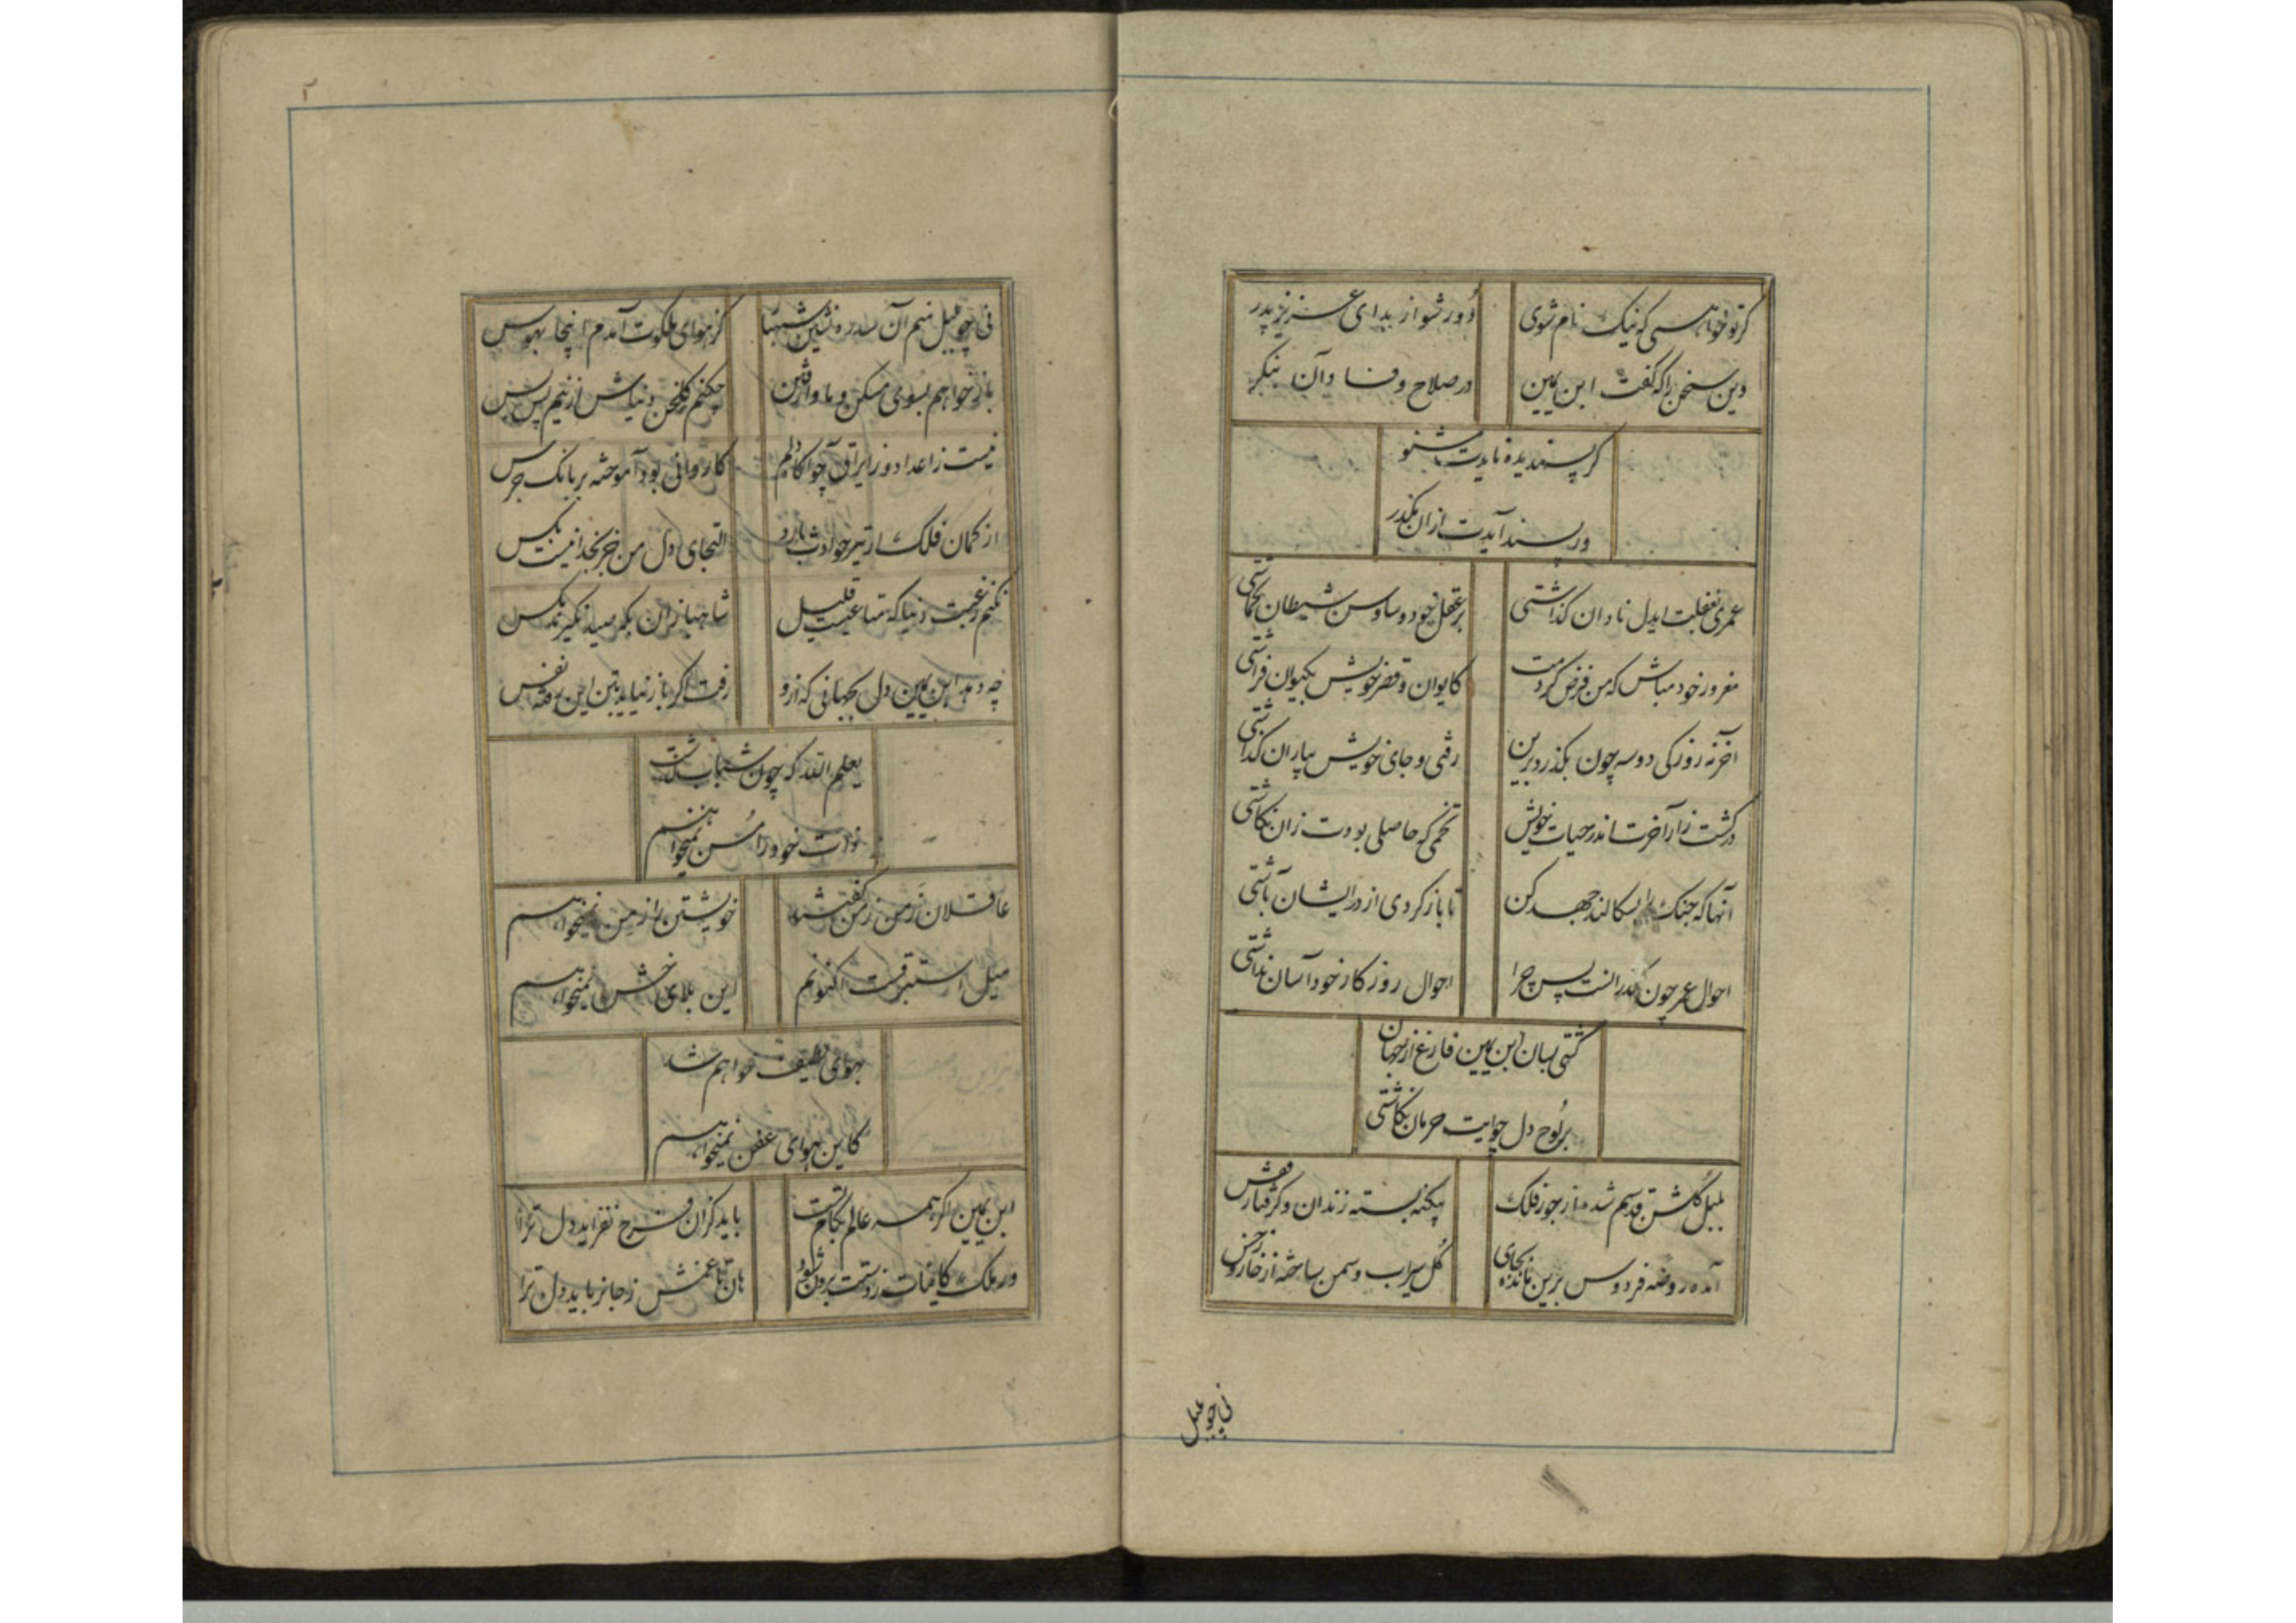 گر تو خواهی که نیک نام شوی دور شو از بدای عزیز پدر
وین سخن را که گفت ابن یمین در صلاح و فساد آن بنگر
گر پسندیده نایدت مشنو
ور پسند آیدت ازان مگذر
عمری بغفلت ایدل نادان گذاشتی بر عقل خود وساوس شیطان گماشتی
مغرور خود مباش که من فرض کردمت کایوان و قصر خویش بکیوان فراشتی
آخر نه روزکی دو سه چون بگذرد برین رفتی و جای خویش بیاران گذاشتی
در کشت زار آخرت اندر حیات خویش تخمی که حاصلی بودت زان نکاشتی
آنها که جنک را سکالند جهد کن تا باز کردی از در ایشان آشتی
احوال عمر چون گذرانست پس چرا احوال روزکار خود آسان نداشتی
گشتی بسان ابن یمین فارغ از جهان
بر لوح دل چو آیت حرمان نگاشتی
بلبل گلشن قدسم شده از جور فلک بیگنه بسته زندان و گرفتار قفس
آمده روضه فردوس برین مانده بجای گل سیراب و سمن ساخته از خار و خس
نی چو
نی چو منم آن سدره نشین کز هوای ملکوت آمدم اینجا بهوس
باز خواهم بسوی مسکن و ماوا رفتن چکنم گلخن دنیاش ازینم پس بس
نیست زاعداد و کاروانی بود آموخته بر بانک جرس
از کمان فلک ار تیر حوادث بارد التجای دل من جز بخدا نیست بکس
نکنم رغبت دنیا که متاعیست قلیل شاهبازان بکه صید نگیرند مکس
چه دهد ابن یمین دل بجهانی که ازو رفت اگر باز نیاید بتن این نفس
یعلم الله که چون شباب گذشت
ذات خود را مسن نمیخواهم
عاقلان زمن زمن گفتند خویشتن را زمن نمیخواهم
میل استبرقست اکنونم این بلای خشن نمیخواهم
بهوای لطیف خواهم شد
کاین هوای عفن نمیخواهم
ابن یمین اگر همه عالم بکام تست باید کزان فرح نفزاید دل ترا
ور ملک کاینات ز دستت برون شود هان تا غمش ز جا نرباید دل ترا